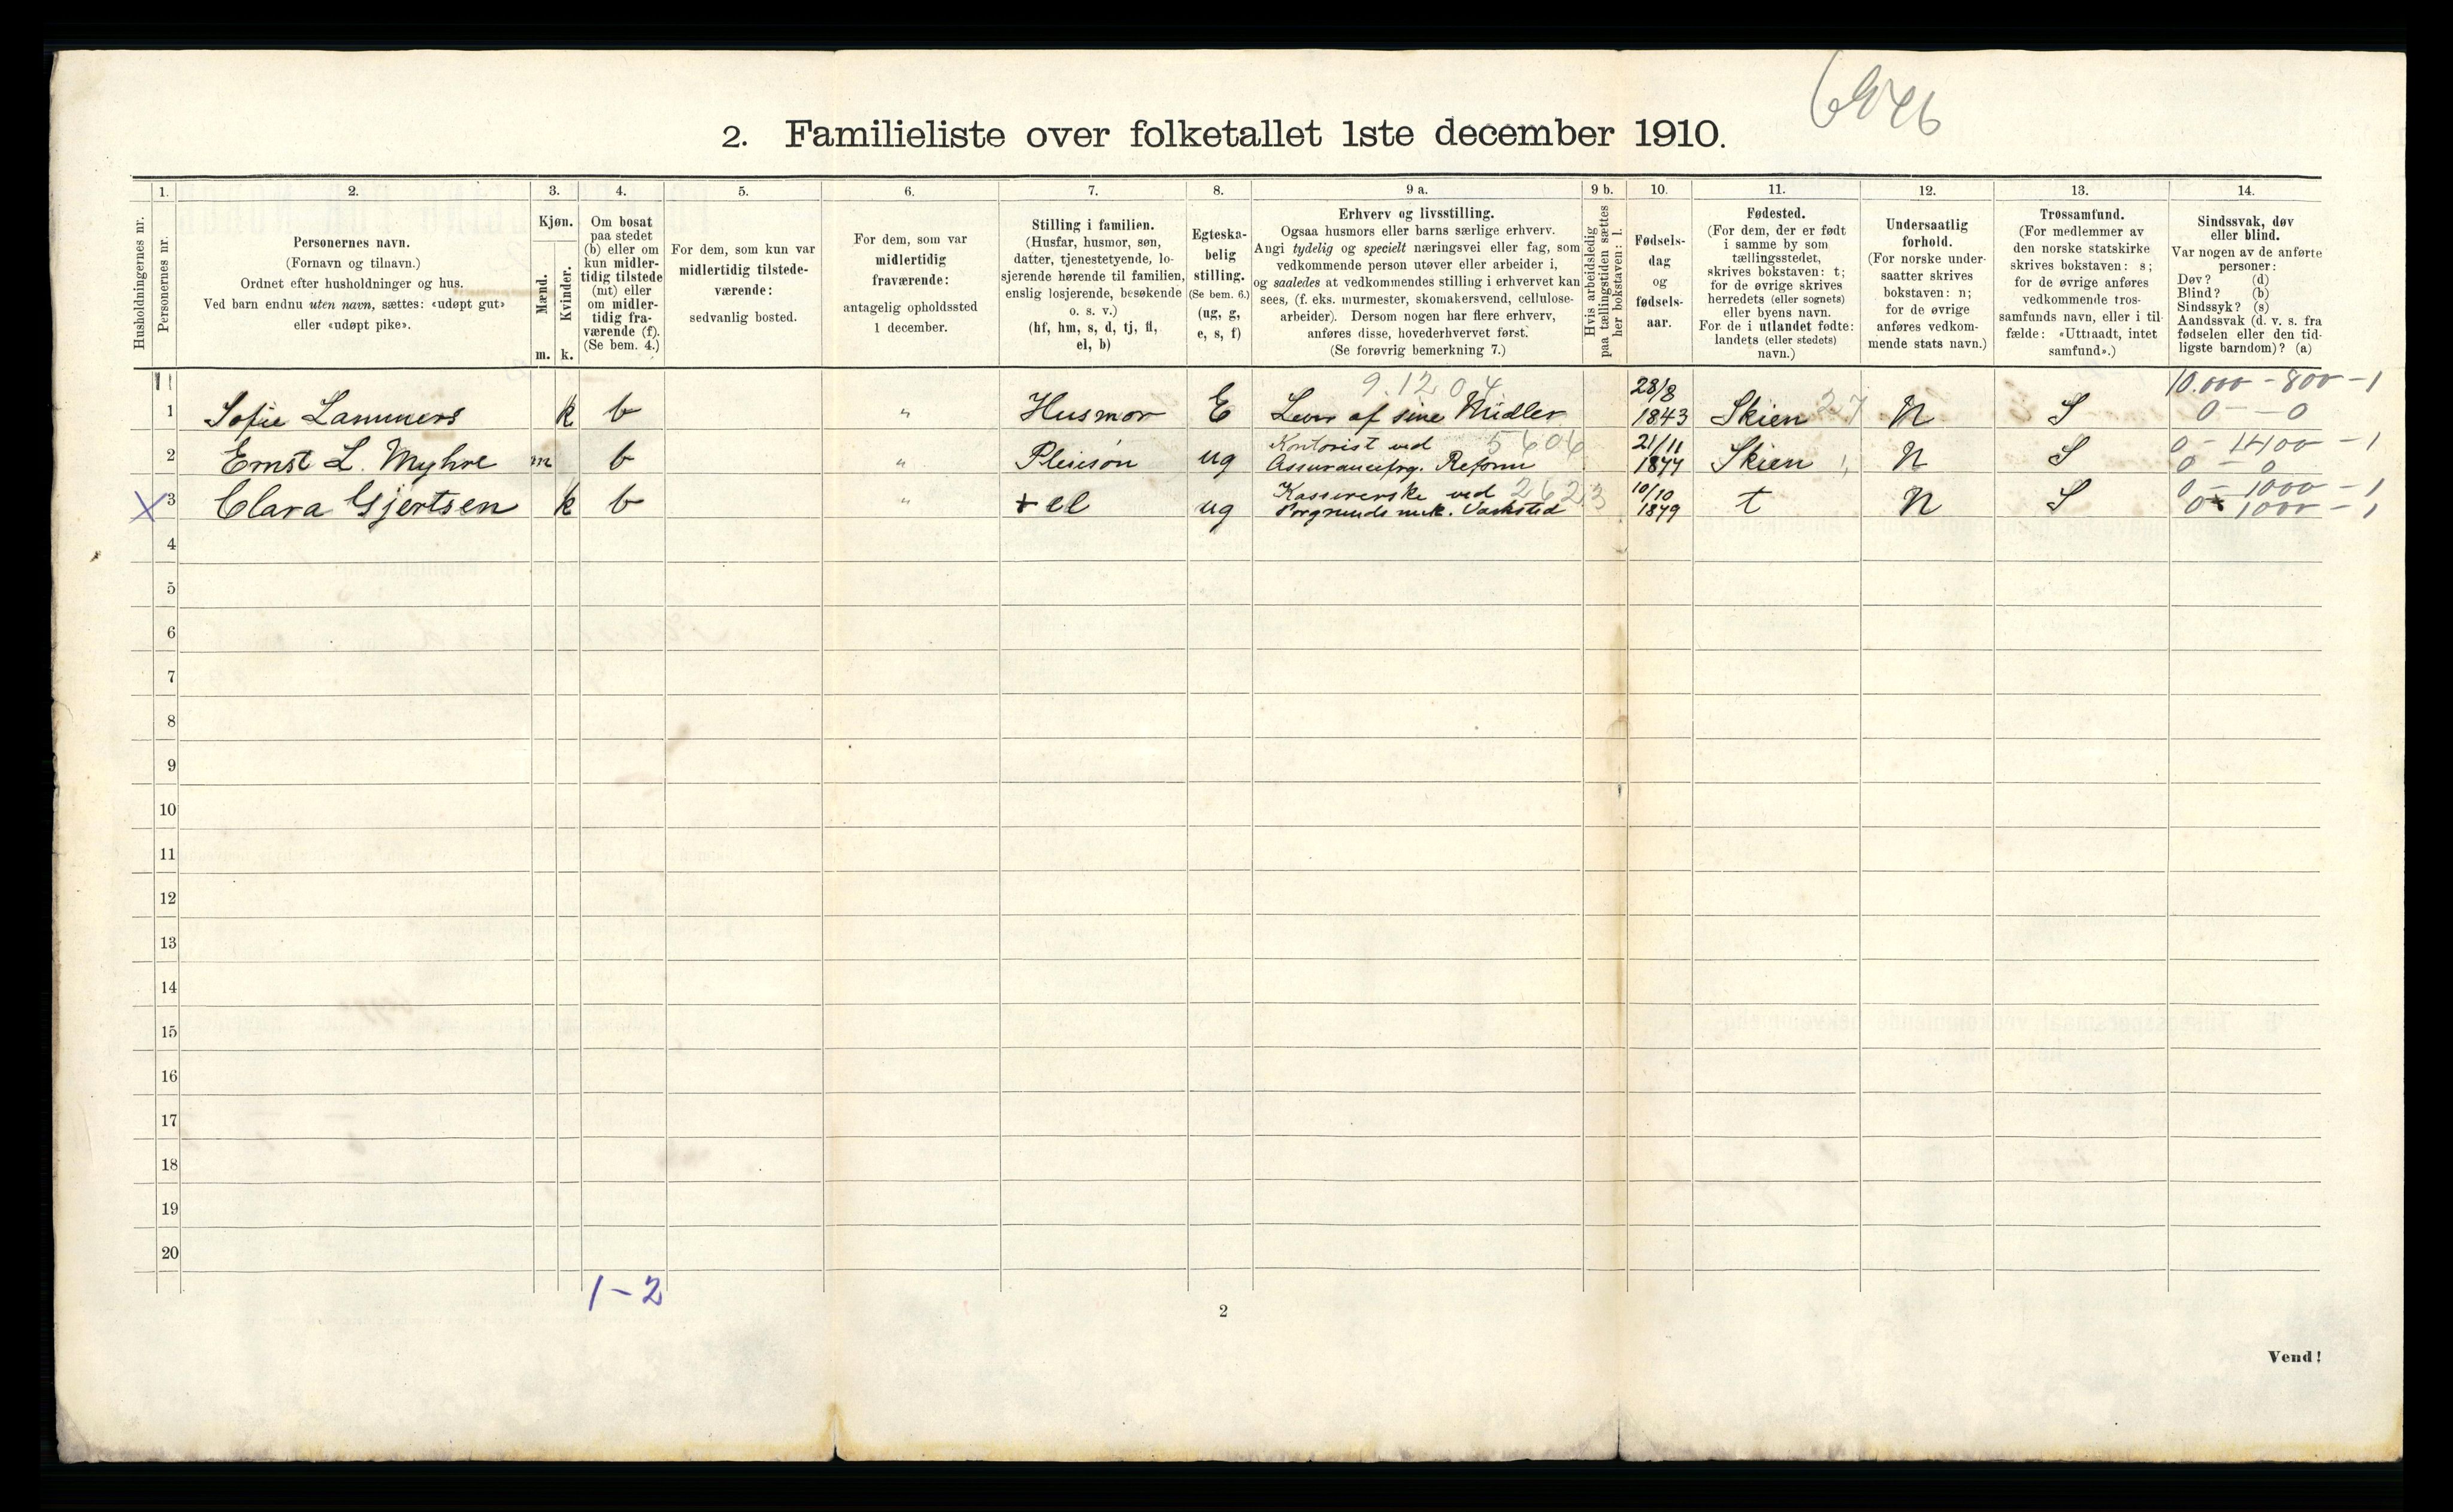 2. Familieliste over folketallet 1ste december 1910.
1.
2.
3.
4.
5.
6.
7.
8.
9 a.
9 b.
10.
11.
12.
13.
14.
Husholdningernes nr.
Personernes nr.
Personernes navn.
(Fornavn og tilnavn.)
Ordnet efter husholdninger og hus.
Ved barn endnu uten navn, sættes: «udøpt gut»
eller «udøpt pike».
Kjøn.
Mænd.
Kvinder.
m. k.
Om bosat
paa stedet
(b) eller om
kun midler-
tidig tilstede
(mt) eller
om midler-
tidig fra-
værende (f).
(Se bem. 4.)
For dem, som kun var
midlertidig tilstede-
værende:
sedvanlig bosted.
For dem, som var
midlertidig
fraværende:
antagelig opholdssted
1 december.
Stilling i familien.
(Husfar, husmor, søn,
datter, tjenestetyende, lo-
sjerende hørende til familien,
enslig losjerende, besøkende
o. s. v.)
(hf, hm, s, d, tj, fl,
el, b)
Egteska-
belig
stilling.
(Se bem. 6.)
(ug, g,
e, s, f)
Erhverv og livsstilling.
Ogsaa husmors eller barns særlige erhverv.
Angi tydelig og specielt næringsvei eller fag, som
vedkommende person utøver eller arbeider i,
og saaledes at vedkommendes stilling i erhvervet kan
sees, (f. eks. murmester, skomakersvend, cellulose-
arbeider). Dersom nogen har flere erhverv,
anføres disse, hovederhvervet først.
(Se forøvrig bemerkning 7.)
Hvis arbeidsledig
paa tællingstiden sættes
her bokstaven: l.
Fødsels-
dag
og
fødsels-
aar.
Fødested.
(For dem, der er født
i samme by som
tællingsstedet,
skrives bokstaven: t;
for de øvrige skrives
herredets (eller sognets)
eller byens navn.
For de i utlandet fødte:
landets (eller stedets)
navn.)
Undersaatlig
forhold.
(For norske under-
saatter skrives
bokstaven: n;
for de øvrige
anføres vedkom-
mende stats navn.)
Trossamfund.
(For medlemmer av
den norske statskirke
skrives bokstaven: s;
for de øvrige anføres
vedkommende tros-
samfunds navn, eller i til-
fælde: «Uttraadt, intet
samfund».)
Sindssvak, døv
eller blind.
Var nogen av de anførte
personer:
Døv? (d)
Blind? (b)
Sindssyk? (s)
Aandssvak (d. v. s. fra
fødselen eller den tid-
ligste barndom)? (a)
1 Sofie Lammers k b " Husmor E Lever af sine Midler 9.12 04 28/8 1843 Skien 27 N S 10.000 - 800 - 1
0 - 0
2 Ernst L. Myhre m b " Pleiesøn ug Kontorist ved 5606 21/11 1877 Skien N S 0 - 1400 - 1
Assurancefrg. Reform 0 - 0
X 3 Clara Gjertsen k b " + el ug Kassererske ved 2623 10/10 1879 t N S 0 - 1000 - 1
Porgrunds mek. Værksted 0 1000 - 1
4
5
6
7
8
9
10
11
12
13
14
15
16
17
18
19
20
1-2
2
Vend!